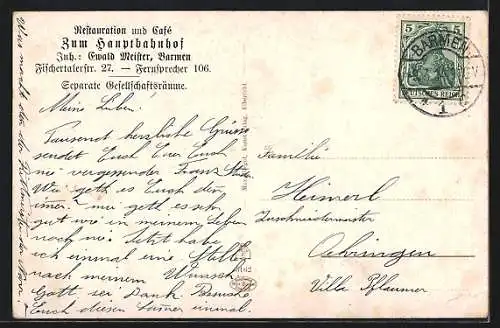 Restauration und Café
Zum Hauptbahnhof
Inh.: Ewald Meister, Barmen
Fischertalerstr. 27. — Fernsprecher 106.
Separate Gesellschaftsräume.
Meine Lieben!
Tausend herzliche Grüsse
sendet Euch Euer Euch
nie vergessender Franz
Wie geht es Euch den
immer? mir geht es sehr
gut wie in meinem Leben
noch nie. Jetzt habe
ich einmal eine Stelle
nach meinem Wunsch
Gott sei Dank.
Euch diesen Sommer einmal.
Was macht den der
5 5
DEUTSCHES REICH
BARMEN
1
Familie
Heimerl
Oehringen
Villa Pflaumer